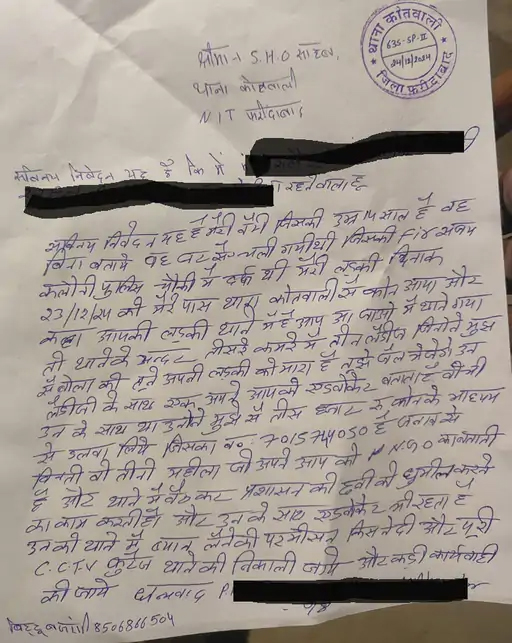 थाना कोतवाली
635-SP-II
24/12/2024
जिला फ़रीदाबाद
श्रीमान S.H.O साहब,
थाना कोतवाली
N I T फरीदाबाद
सविनय निवेदन यह है कि मैं
रहने वाला हूँ
सविनय निवेदन यह है मेरी बेटी जिसकी उम्र 14 साल है वह
बिना बताये वह घर से चली गयी थी जिसकी Fir संजय
कलोनी पुलिस चौकी में दर्ज थी मेरी लड़की दिनांक
23/12/24 को मेरे पास थाना कोतवाली से फोन आया और
कहा आपकी लड़की थाने में है आप आ जाओ मैं थाने गया
तो थाने के अन्दर तीसरे कमरे में तीन लेडीज जिन्होंने मुझ
से बोला की तूने अपनी लड़की को मारा है तुझे जेल भेजेंगे उन
लेडीजो के साथ एक अपने आपको एडवोकेट बताता है वो भी
उन के साथ था उन्होंने मुझ से तीस हजार रु फोन के माध्यम
से डलवा लिये जिसका नo:- 7015744050 है जनाब से
विनती वो तीनो महीला जो अपने आप को N.G.O का बताती
है और थाने में बैठ कर प्रशासन की छवी को धुमील करने
का काम करती है और उन के साथ एडवोकेट भी रहता है
उनको थाने में ब्यान लेने की परमीसन किसने दी और पूरी
C.C.T.V फुटेज थाने की निकाली जाये और कडी कार्यवाही
की जाये धन्यवाद
बिट्टू बजरंगी 8506866504